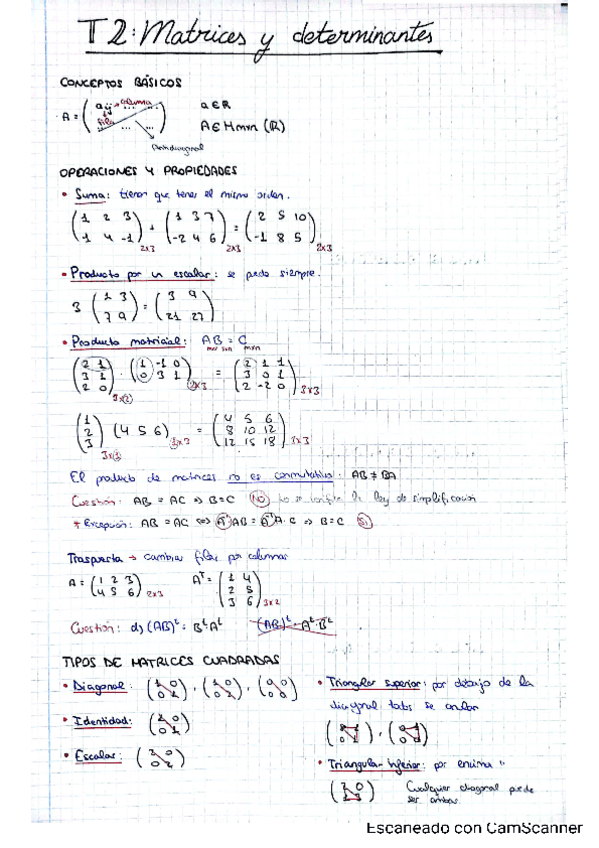 T2: Matrices y determinantes
CONCEPTOS BÁSICOS
A = ( aij → columna a∈R
fila ... ... ) A∈Mmxn (R)
Antidiagonal
OPERACIONES Y PROPIEDADES
• Suma: tienen que tener el mismo orden.
(1 2 3) + (1 3 7) = (2 5 10)
(1 4 -1)2x3 (-2 4 6)2x3 (-1 8 5)2x3
• Producto por un escalar: se puede siempre.
3 (1 3) = (3 9)
(7 9) (21 27)
• Producto matricial: AB = C
(2 1) (1 -1 0) (2 1 1)
(3 1) · (0 3 1)2x3 = (3 0 1)
(2 0)3x2 (2 -2 0)3x3
(1) (4 5 6)
(2) (4 5 6)1x3 = (8 10 12)
(3)3x1 (12 15 18)3x3
El producto de matrices no es conmutativo. AB ≠ BA
Cuestión: AB = AC ⇒ B=C (NO) No se verifica la ley de simplificación
* Excepción: AB = AC ⇔ A⁻¹AB = A⁻¹A·C ⇒ B=C (Sí)
Traspuesta → cambiar filas por columnas
A = (1 2 3) Aᵗ = (1 4)
(4 5 6)2x3 (2 5)
(3 6)3x2
Cuestión: d) (AB)ᵗ = BᵗAᵗ (AB)ᵗ = Aᵗ·Bᵗ
TIPOS DE MATRICES CUADRADAS
• Diagonal:
• Identidad: (1 0)
(0 1)
• Escalar: (2 0)
(0 2)
• Triangular superior: por debajo de la
diagonal todos se anulan
• Triangular inferior: por encima "
Cualquier diagonal puede
ser ambas.
Escaneado con CamScanner